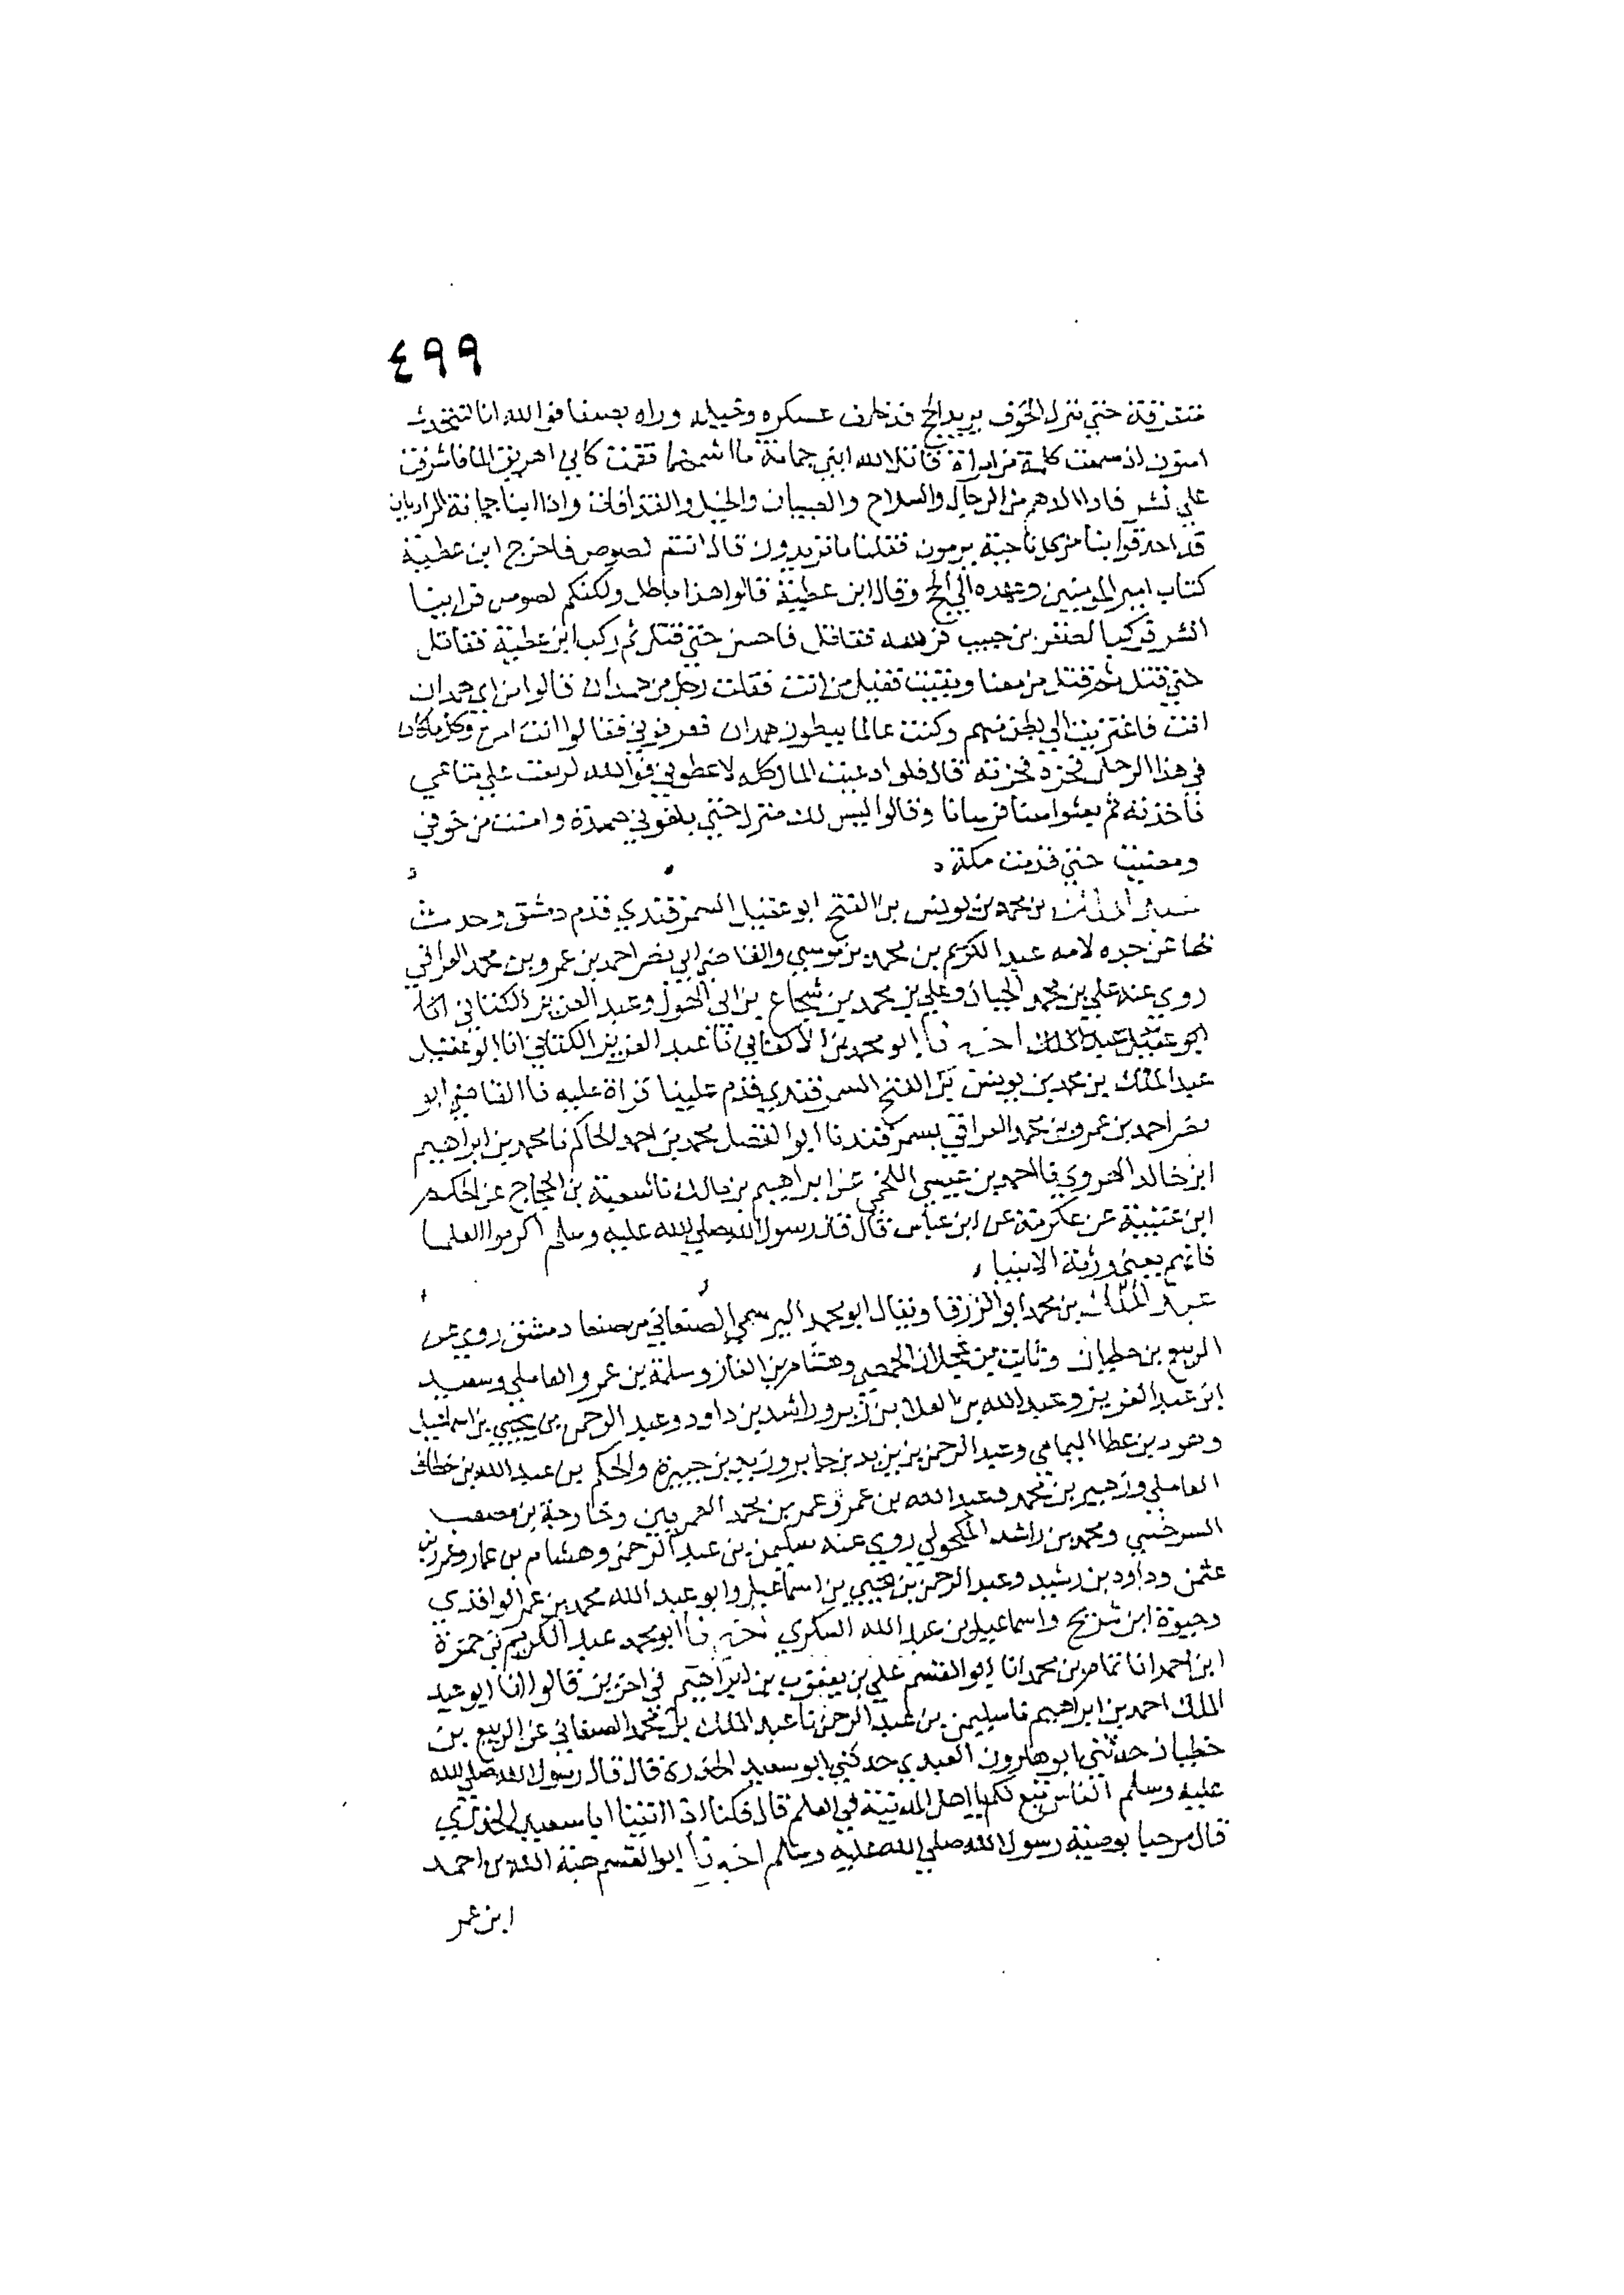 ٤٩٩
متفرقة حتى نزل الجوف يريد الحج قد خلف عسكره وخيله وراه بصنعا فوالله انا لنتحدث
امنون اذ سمعت كلمة من امراة قاتل الله ابني جمانة ما اشمهما فقمت كاني اهريق الما فاشرفت
علي نشز فاذا الدهم من الرجال والسلاح والصبيان والخيل والقذافات واذا ابنا جمانة المراديان
قد احدقوا بنا من كل ناحية يرمون فقلنا ما تريدون قالوا انتم لصوص فاخرج ابن عطية
كتاب امير المومنين وعهده الي الحج وقال ابن عطية قالوا هذا باطل ولكنكم لصوص فراينا
الشر فركب الصفر بن حبيب فرسه فقاتل فاحسن حتي قتل ثم ركب ابن عطية فقاتل
حتي قتل ثم قتل من معنا وبقيت فقيل من انت فقلت رجل من همدان قالوا من اي همدان
انت فاعتزيت الي بطن منهم وكنت عالما ببطون همدان فعرفوني فقالوا انت امن وكل ما كان
في هذا الرحل فخذه قال فلو ادعيت المال كله لاعطوني فوالله لدفعت علي متاعي
فاخذته ثم بعثوا معنا فرسانا وقالوا ليس لك منزل حتي بلغوني صعدة وامنت من خوفي
ومضيت حتي قدمت مكة
عبد الملك بن محمد بن يونس بن الفتح ابو عقيل السمرقندي قدم دمشق وحدث
بها عن جده لامه عبد الكريم بن محمد بن موسي والقاضي ابي نصر احمد بن عمرو بن محمد العراقي
روي عنه علي بن محمد الجيان وعلي بن محمد بن شجاع بن ابي الهول وعبد العزيز الكتاني
ابو عقيل عبد الملك اخبرنا ابو محمد بن الاكفاني نا عبد العزيز الكتاني انا ابو عقيل
عبد الملك بن محمد بن يونس بن الفتح السمرقندي قدم علينا قراة عليه نا القاضي ابو
نصر احمد بن عمرو بن محمد العراقي بسمرقند نا ابو الفضل محمد بن احمد الحاكم نا محمد بن ابراهيم
ابن خالد الهروي نا احمد بن عيسي اللخمي عن ابراهيم بن مالك نا شعبة بن الحجاج عن الحكم
ابن عتيبة عن عكرمة عن ابن عباس قال قال رسول الله صلي الله عليه وسلم اكرموا العلما
فانهم يعني ورثة الانبيا
عبد الملك بن محمد ابو الزرقا ويقال ابو محمد البرسمي الصنعاني من صنعا دمشق روي عن
الربيع بن حظيان وثابت بن عجلان الحمصي وهشام بن الغاز وسلمة بن عمرو العاملي وسعيد
ابن عبد العزيز وعبد الله بن العلا بن زبر وراشد بن داود وعبد الرحمن بن يحيي بن اسمعيل
بن عطا اليمامي وعبد الرحمن بن يزيد بن جابر وزيد بن جبيرة والحكم بن عبد الله بن خطاف
العاملي وزهير بن محمد وعبد الله بن عمر وعمر بن محمد العمريين وخارجة بن مصعب
السرخسي ومحمد بن راشد المكحولي روي عنه سليمن بن عبد الرحمن وهشام بن عمار وعمرو بن
عثمن وداود بن رشيد وعبد الرحمن بن يحيي بن اسماعيل وابو عبد الله محمد بن عمر الواقدي
وحيوة ابن شريح واسماعيل بن عبد الله السكري اخبرنا ابو محمد عبد الكريم بن حمزة
ابن احمد انا تمام بن محمد انا ابو القسم علي بن يعقوب بن ابراهيم في اخرين قالوا انا ابو عبد
الملك احمد بن ابراهيم نا سليمن بن عبد الرحمن نا عبد الملك بن محمد الصنعاني عن الربيع بن
حظيان حدثني ابو هارون العبدي حدثني ابو سعيد الخدري قال قال رسول الله صلي الله
عليه وسلم الناس تبع لكم يا اهل المدينة في العلم قال فكنا اذا اتينا ابا سعيد الخدري
قال مرحبا بوصية رسول الله صلي الله عليه وسلم اخبرنا ابو القسم هبة الله بن احمد
ابن عمر